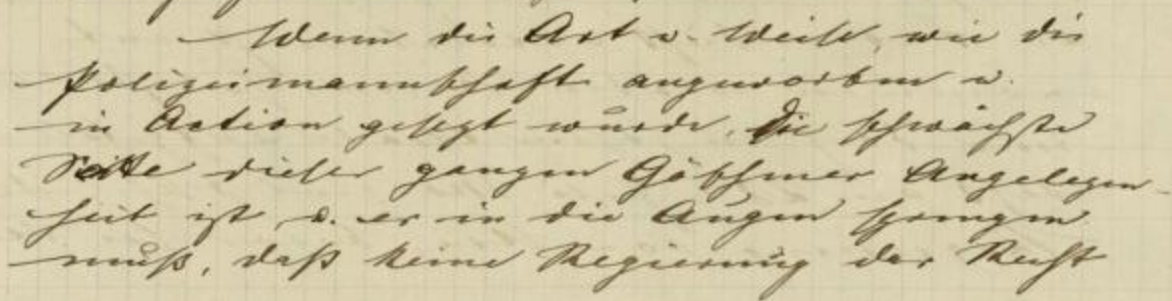 Wenn die Art u. Weise, wie die
Polizeimannschaft angeworben u.
in Action gesetzt wurde, die schwächste
Seite dieser ganzen Göschener Angelegen-
heit ist u. es in die Augen springen
muß, daß keine Regierung das Recht